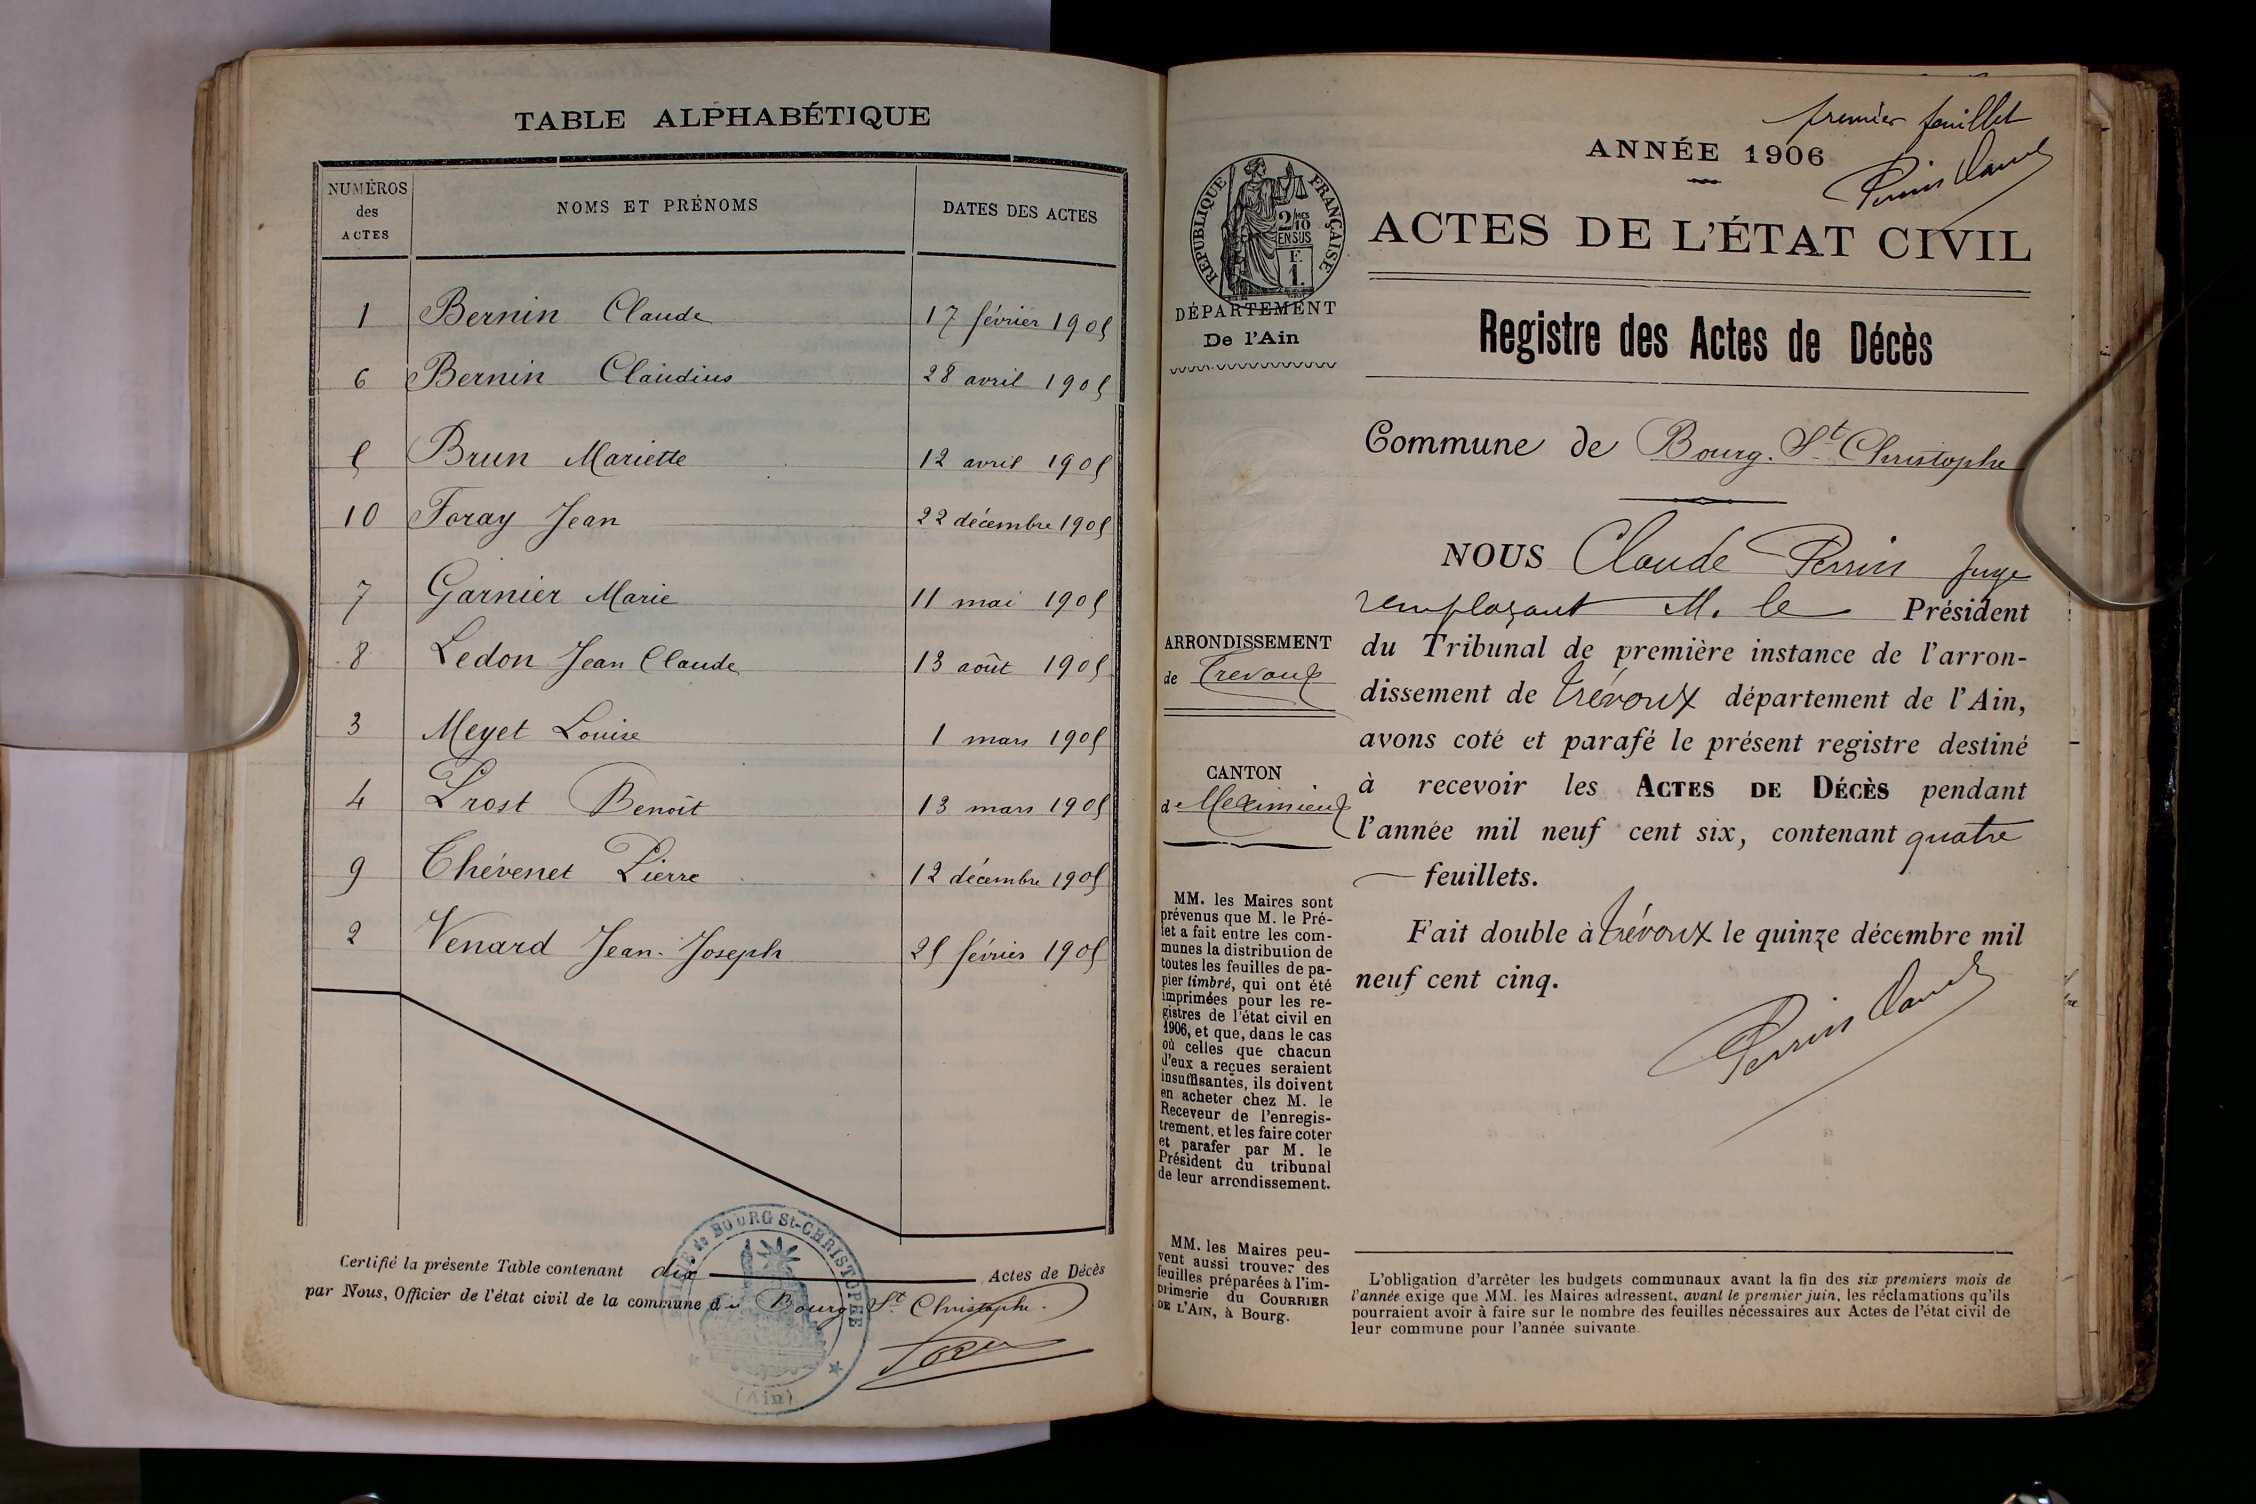 TABLE ALPHABÉTIQUE
NUMÉROS des ACTES
NOMS ET PRÉNOMS
DATES DES ACTES
1 Bernin Claude 17 février 1905
6 Bernin Claudius 28 avril 1905
5 Brun Mariette 12 avril 1905
10 Foray Jean 22 décembre 1905
7 Garnier Marie 11 mai 1905
8 Ledon Jean Claude 13 août 1905
3 Meyet Louise 1 mars 1905
4 Prost Benoît 13 mars 1905
9 Thévenet Pierre 12 décembre 1905
2 Venard Jean-Joseph 25 février 1905
Certifié la présente Table contenant dix Actes de Décès
par Nous, Officier de l'état civil de la commune de Bourg St Christophe.
MAIRIE de BOURG St-CHRISTOPHE
(Ain)
premier feuillet
ANNÉE 1906
Perrin Claude
RÉPUBLIQUE FRANÇAISE
2/10 EN SUS
F. 1.
ACTES DE L'ÉTAT CIVIL
DÉPARTEMENT
De l'Ain
Registre des Actes de Décès
Commune de Bourg. St Christophe
ARRONDISSEMENT
de Trévoux
CANTON
de Meximieux
MM. les Maires sont
prévenus que M. le Pré-
fet a fait entre les com-
munes la distribution de
toutes les feuilles de pa-
pier timbré, qui ont été
imprimées pour les re-
gistres de l'état civil en
1906, et que, dans le cas
où celles que chacun
d'eux a reçues seraient
insuffisantes, ils doivent
en acheter chez M. le
Receveur de l'enregis-
trement, et les faire coter
et parafer par M. le
Président du tribunal
de leur arrondissement.
MM. les Maires peu-
vent aussi trouver des
feuilles préparées à l'im-
primerie du COURRIER
DE L'AIN, à Bourg.
NOUS Claude Perrin Juge
remplaçant M. le Président
du Tribunal de première instance de l'arron-
dissement de Trévoux département de l'Ain,
avons coté et parafé le présent registre destiné
à recevoir les ACTES DE DÉCÈS pendant
l'année mil neuf cent six, contenant quatre
feuillets.
Fait double à Trévoux le quinze décembre mil
neuf cent cinq.
Perrin Claude
L'obligation d'arrêter les budgets communaux avant la fin des six premiers mois de
l'année exige que MM. les Maires adressent, avant le premier juin, les réclamations qu'ils
pourraient avoir à faire sur le nombre des feuilles nécessaires aux Actes de l'état civil de
leur commune pour l'année suivante